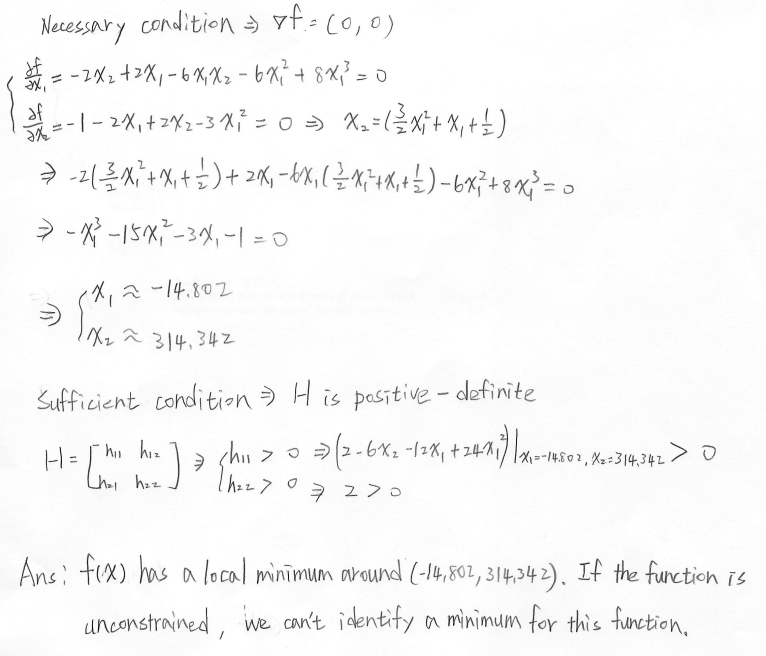 Necessary condition ⇒ ∇f = (0, 0)
{ ∂f/∂x₁ = -2x₂ + 2x₁ - 6x₁x₂ - 6x₁² + 8x₁³ = 0
∂f/∂x₂ = -1 - 2x₁ + 2x₂ - 3x₁² = 0 ⇒ x₂ = (3/2 x₁² + x₁ + 1/2)
⇒ -2(3/2 x₁² + x₁ + 1/2) + 2x₁ - 6x₁(3/2 x₁² + x₁ + 1/2) - 6x₁² + 8x₁³ = 0
⇒ -x₁³ - 15x₁² - 3x₁ - 1 = 0
⇒ { x₁ ≈ -14.802
x₂ ≈ 314.342
Sufficient condition ⇒ H is positive-definite
H = [h₁₁ h₁₂; h₂₁ h₂₂] ⇒ { h₁₁ > 0 ⇒ (2 - 6x₂ - 12x₁ + 24x₁²)|x₁=-14.802, x₂=314.342 > 0
h₂₂ > 0 ⇒ 2 > 0
Ans: f(x) has a local minimum around (-14,802, 314,342). If the function is
unconstrained, we can't identify a minimum for this function.